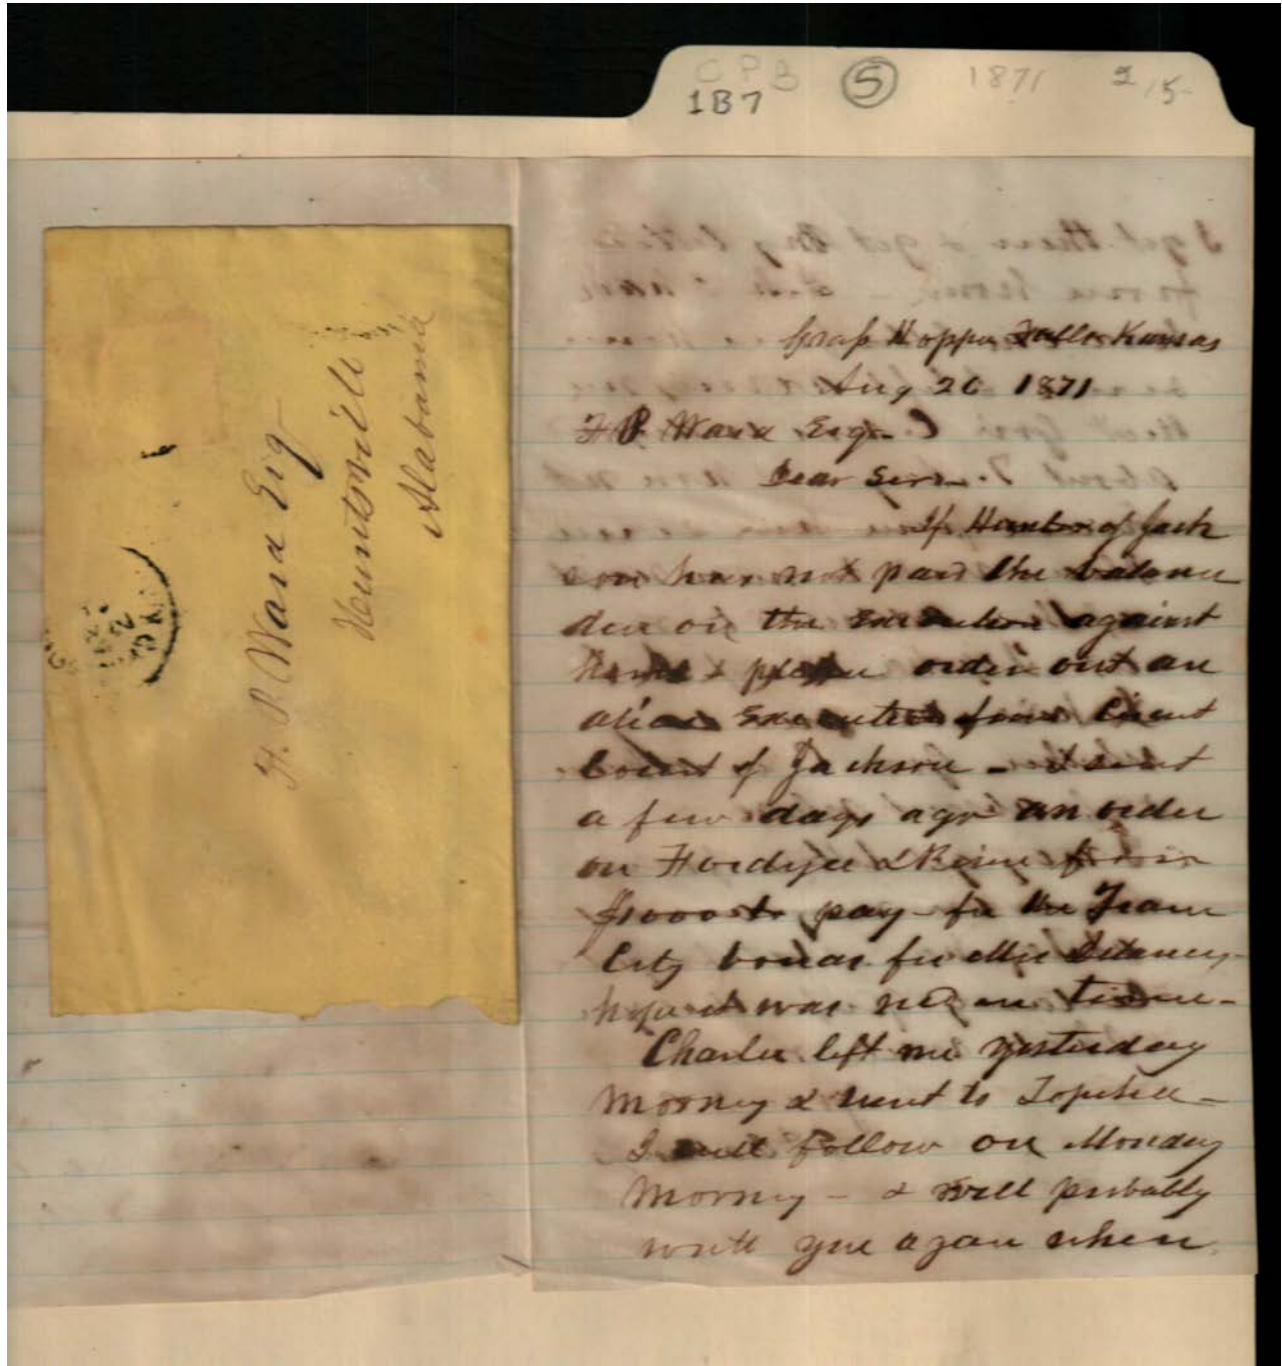 CPB
1B7
5
1871
H. P. Ward Esq
Huntsville
Alabama
Grass Hopper Falls Kansas
Aug 26 1871
F P. Ward Esq. C
Dear Sir.
If Hunt of Jack
son has not paid the balance
due on the Execution against
him & please order out an
alias Execution from Circuit
Court of Jackson - I sent
a few days ago an order
on Fordyce & for
$1000 to pay for the
City bonds for
hope it was in time -
Charlie left me yesterday
Morning & went to Topeka -
I will follow on Monday
Morning - & will probably
write you again when